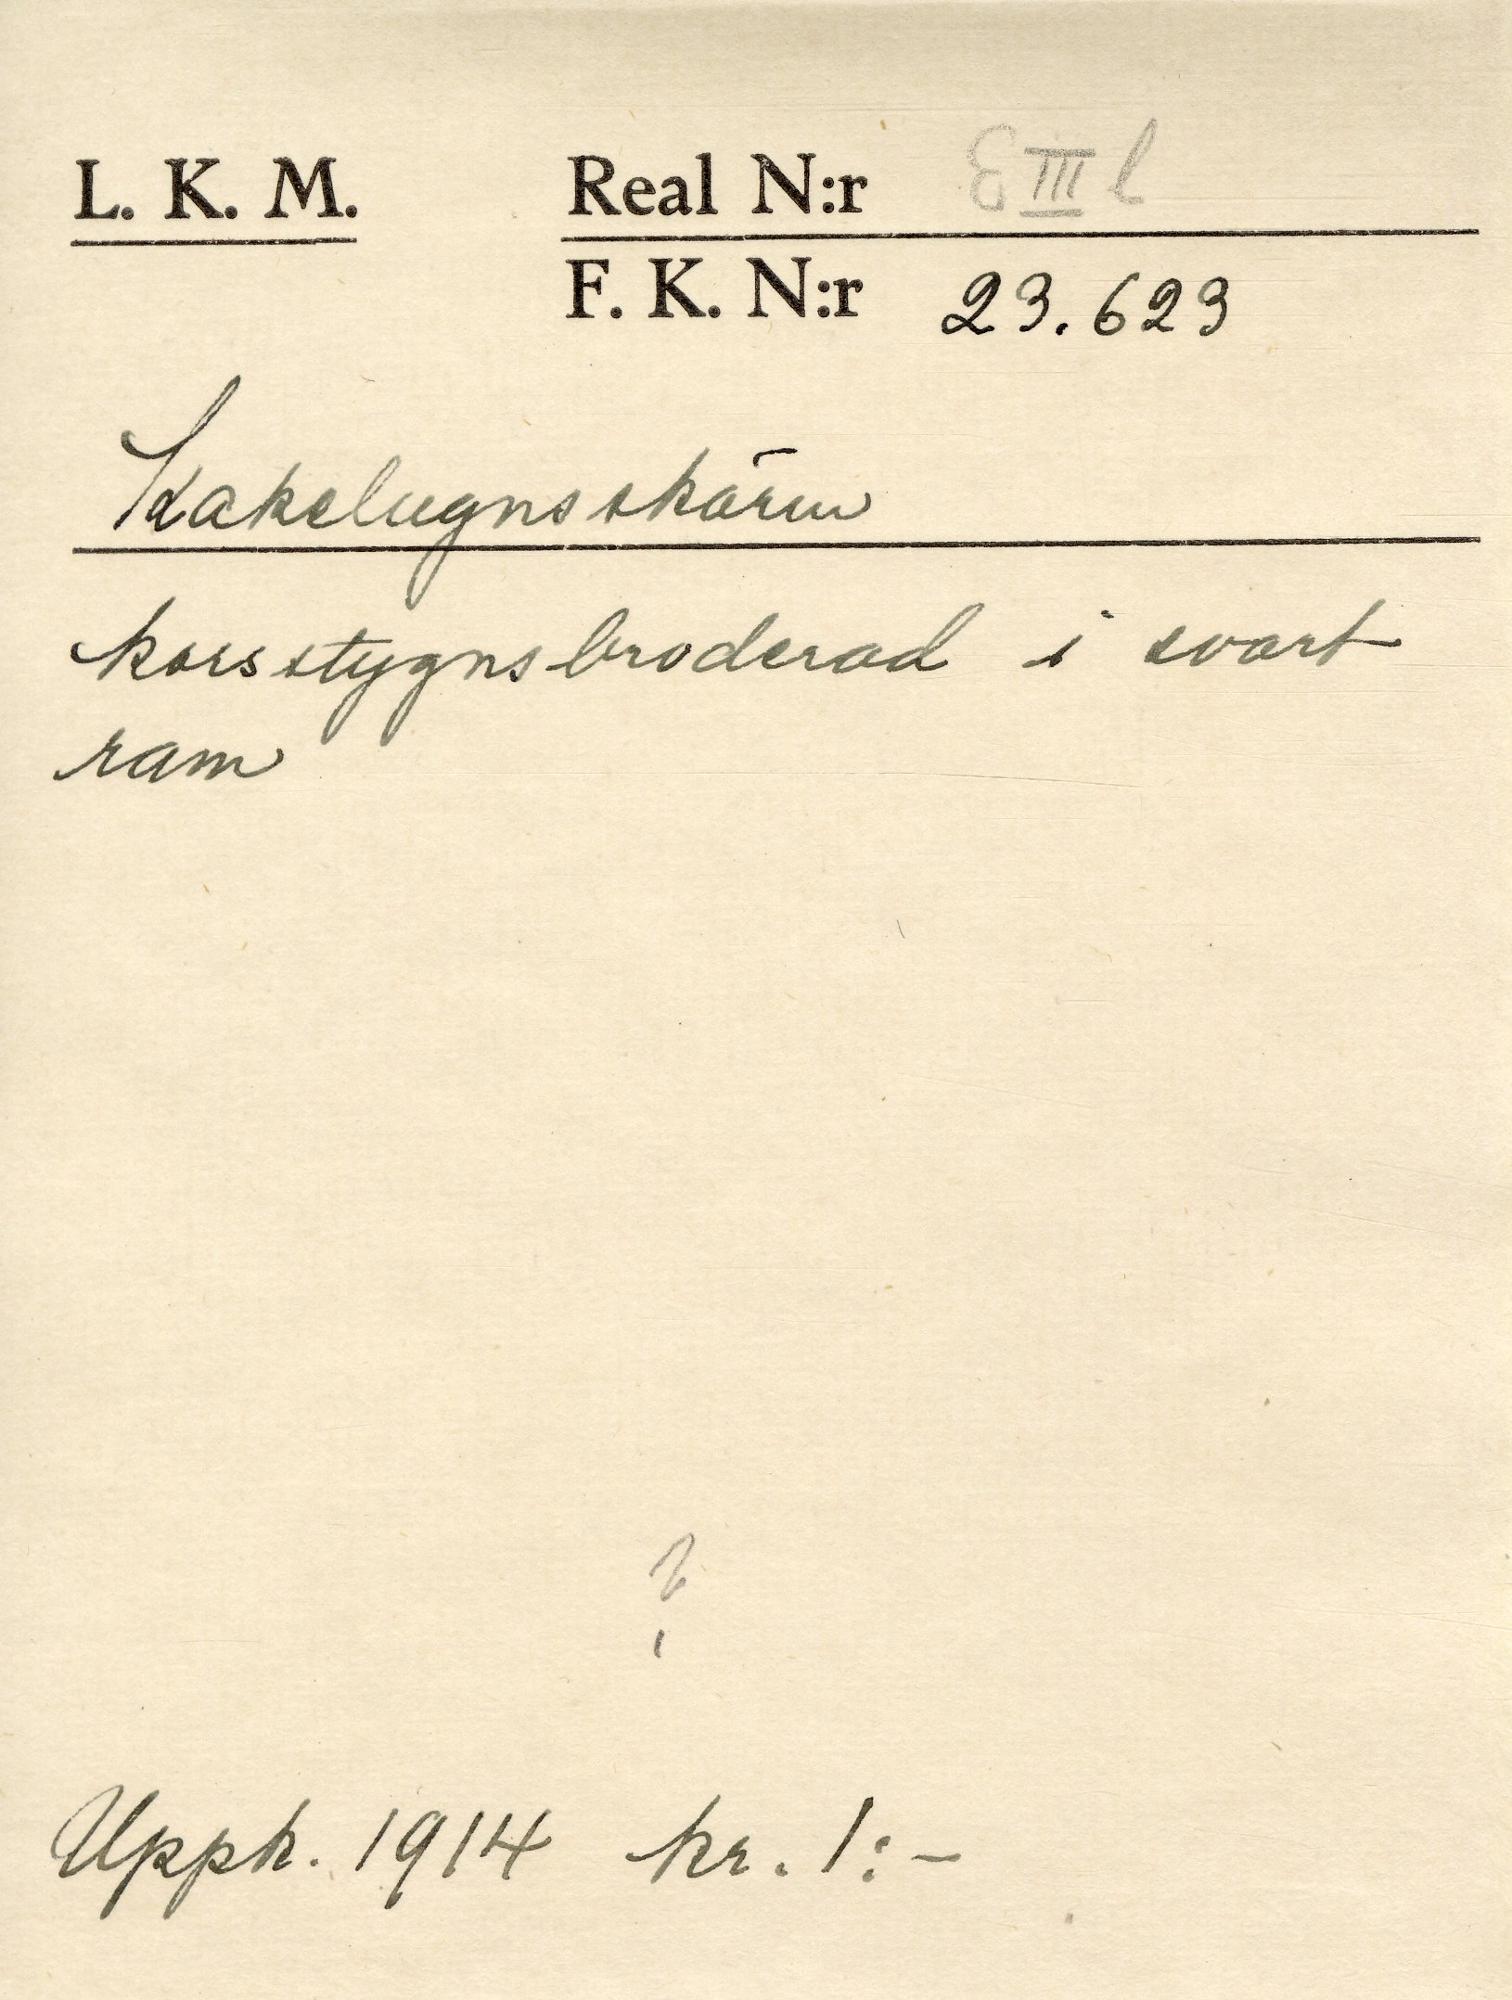 L. K. M.
Real N:r E III l
F. K. N:r 23.623
Kakelugnsskärm
korsstygnsbroderad i svart
ram
?
Uppk. 1914 kr. 1:-